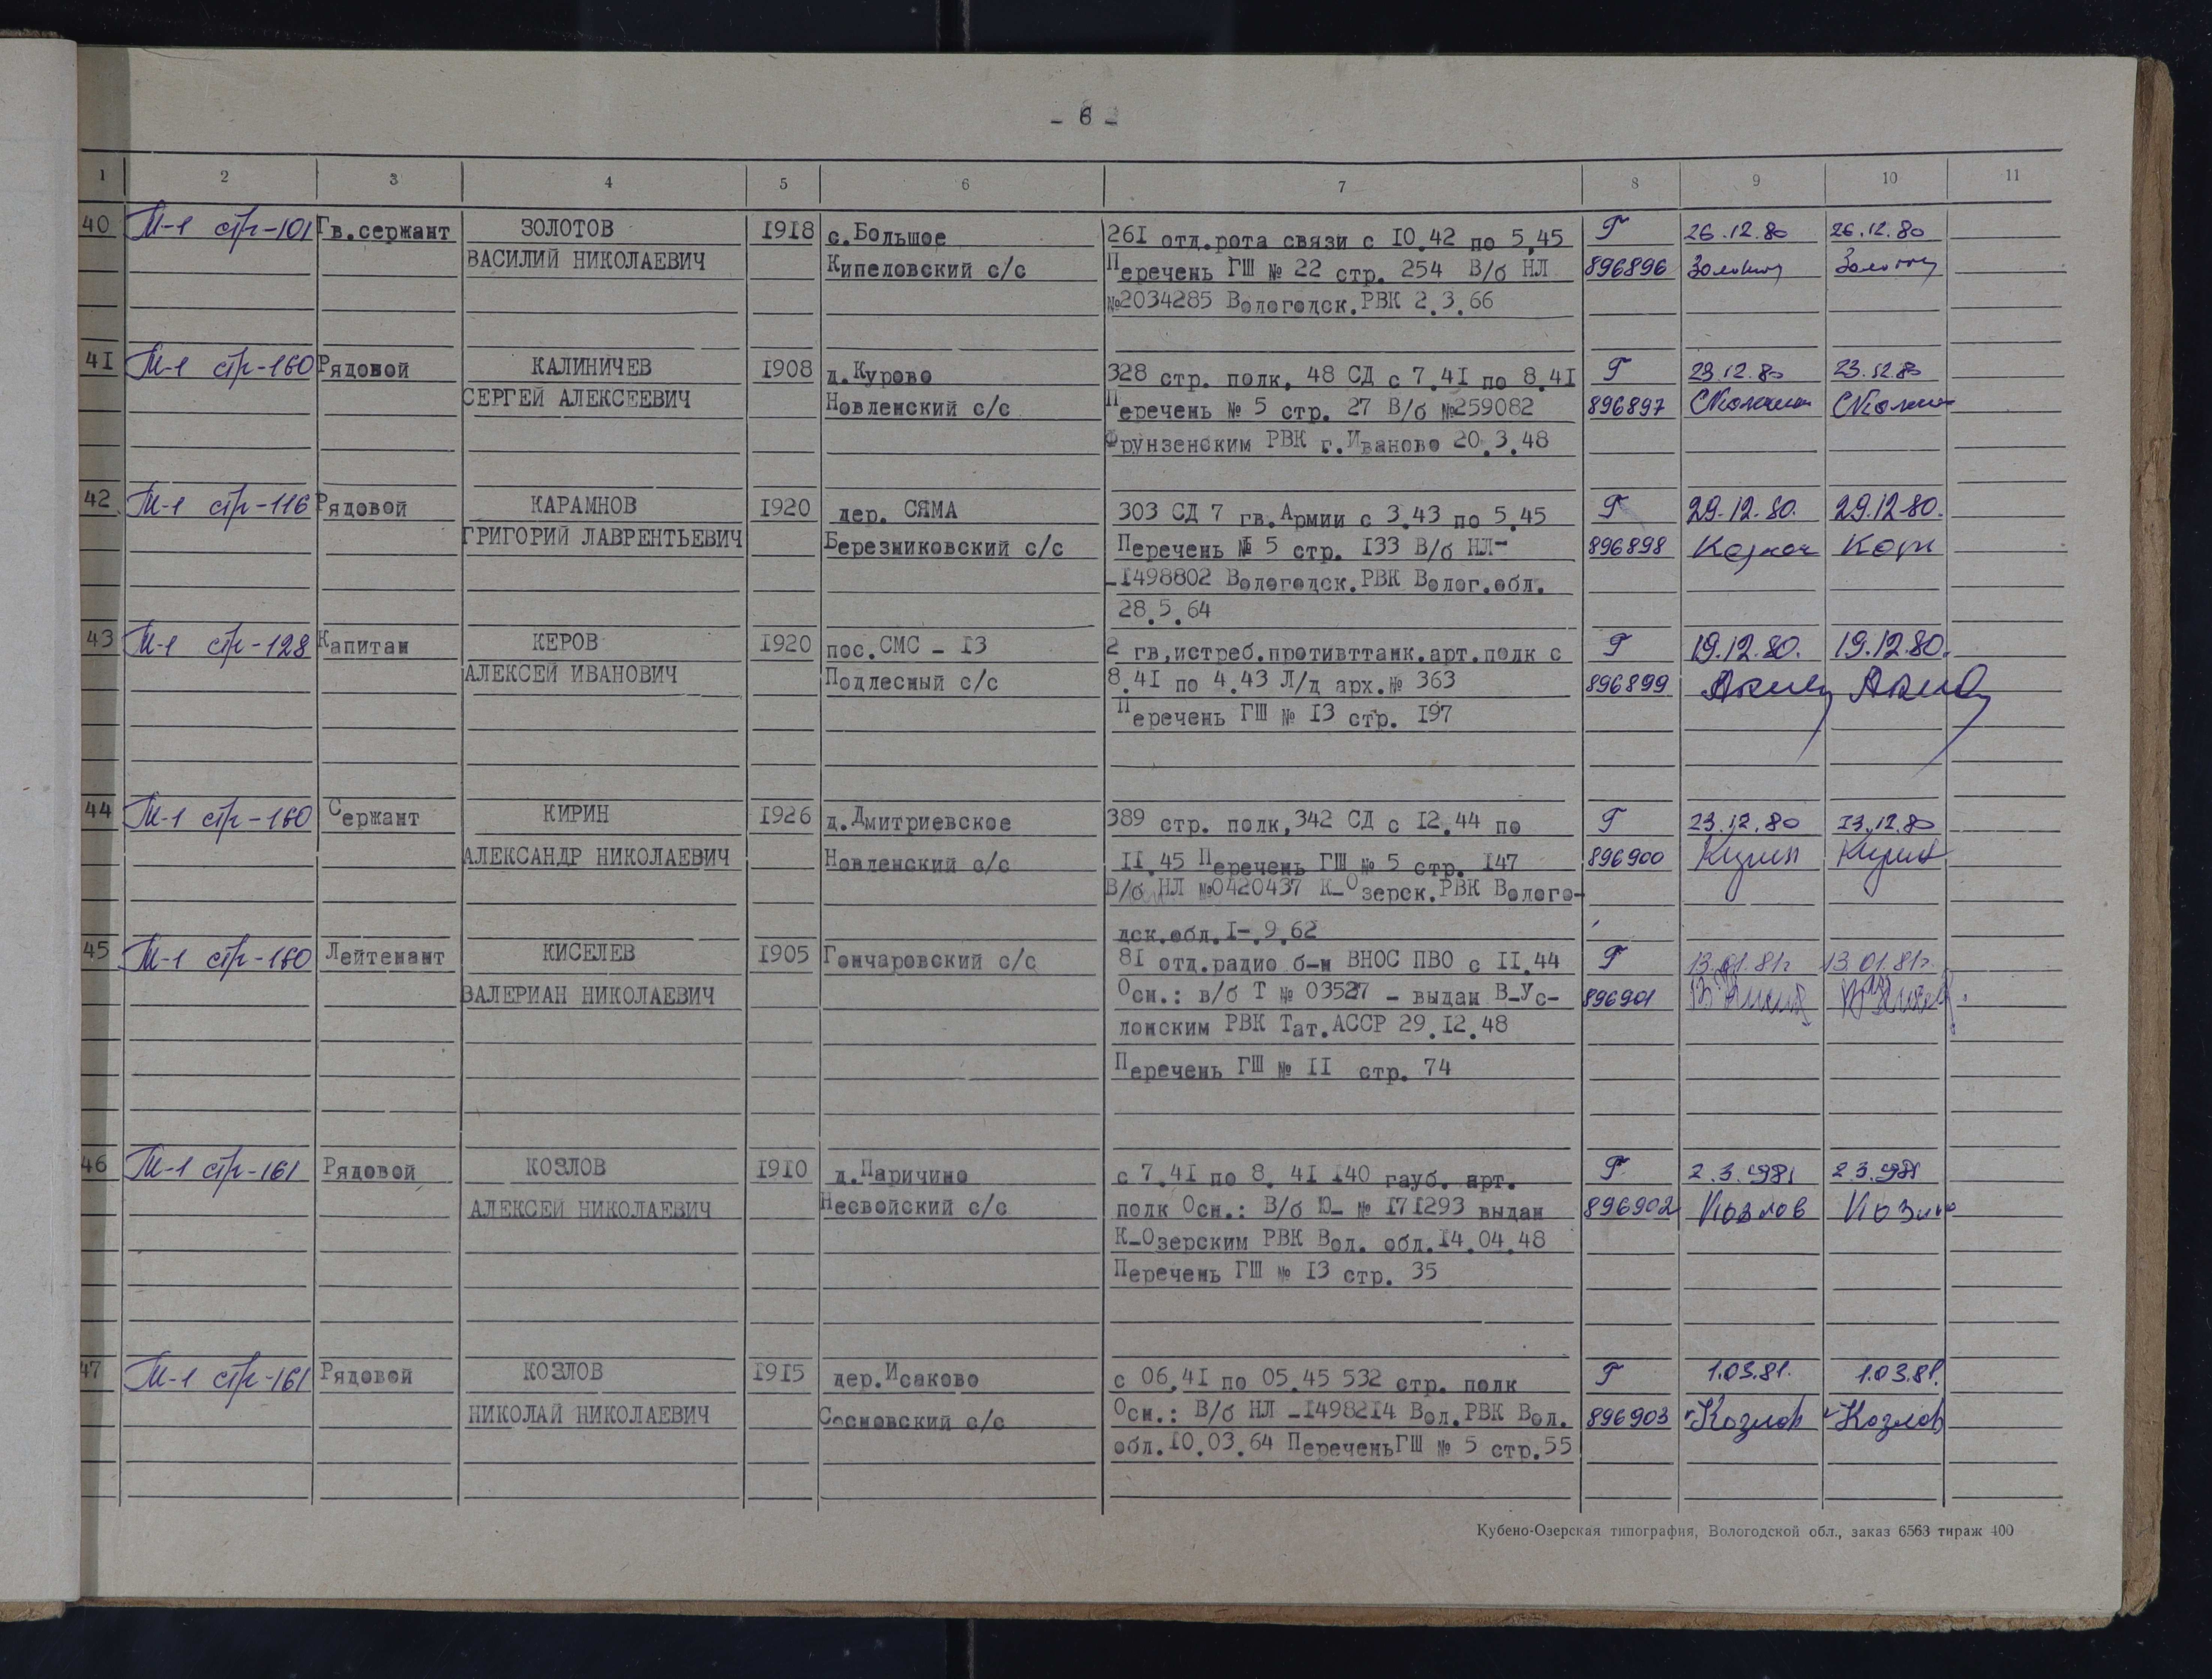 - 6 -
1 2 3 4 5 6 7 8 9 10 11
40 М-1 стр-101 Гв.сержант ЗОЛОТОВ 1918 с.Большое 261 отд.рота связи с 10.42 по 5.45 Г 26.12.80 26.12.80
ВАСИЛИЙ НИКОЛАЕВИЧ Кипеловский с/с Перечень ГШ № 22 стр. 254 В/б НЛ 896896 Золотов Золотов
№2034285 Вологодск.РВК 2.3.66
41 М-1 стр-160 Рядовой КАЛИНИЧЕВ 1908 д.Курово 328 стр. полк, 48 СД с 7.41 по 8.41 Г 23.12.80 23.12.80
СЕРГЕЙ АЛЕКСЕЕВИЧ Новленский с/с Перечень № 5 стр. 27 В/б №259082 896897
Фрунзенским РВК г.Иваново 20.3.48
42 М-1 стр-116 Рядовой КАРАМНОВ 1920 дер. СЯМА 303 СД 7 гв.Армии с 3.43 по 5.45 Г 29.12.80. 29.12.80.
ГРИГОРИЙ ЛАВРЕНТЬЕВИЧ Березниковский с/с Перечень № 5 стр. 133 В/б НЛ- 896898
-1498802 Вологодск.РВК Волог.обл.
28.5.64
43 М-1 стр-128 Капитан КЕРОВ 1920 пос.СМС - 13 2 гв,истреб.противттанк.арт.полк с Г 19.12.80. 19.12.80.
АЛЕКСЕЙ ИВАНОВИЧ Подлесный с/с 8.41 по 4.43 Л/д арх.№ 363 896899
Перечень ГШ № 13 стр. 197
44 М-1 стр-160 Сержант КИРИН 1926 д.Дмитриевское 389 стр. полк,342 СД с 12.44 по Г 23.12.80 23.12.80
АЛЕКСАНДР НИКОЛАЕВИЧ Новленский с/с 11.45 Перечень ГШ № 5 стр. 147 896900 Кирин Кирин
В/б НЛ №0420437 К-Озерск.РВК Волого-
дск.обл.1-.9.62
45 М-1 стр-160 Лейтенант КИСЕЛЕВ 1905 Гончаровский с/с 81 отд.радио б-н ВНОС ПВО с 11.44 Г 13.01.81г 13.01.81г.
ВАЛЕРИАН НИКОЛАЕВИЧ Осн.: в/б Т № 03527 - выдан В-Ус- 896901
лонским РВК Тат.АССР 29.12.48
Перечень ГШ № 11 стр. 74
46 М-1 стр-161 Рядовой КОЗЛОВ 1910 д.Паричино с 7.41 по 8. 41 140 гауб. арт. Г 2.3.1981 2.3.1981
АЛЕКСЕЙ НИКОЛАЕВИЧ Несвойский с/с полк Осн.: В/б Ю- № 171293 выдан 896902 Козлов Козлов
К-Озерским РВК Вол. обл.14.04.48
Перечень ГШ № 13 стр. 35
47 М-1 стр-161 Рядовой КОЗЛОВ 1915 дер.Исаково с 06.41 по 05.45 532 стр. полк Г 1.03.81. 1.03.81.
НИКОЛАЙ НИКОЛАЕВИЧ Сосновский с/с Осн.: В/б НЛ -1498214 Вол.РВК Вол. 896903 Козлов Козлов
обл.10.03.64 ПереченьГШ № 5 стр.55
Кубено-Озерская типография, Вологодской обл., заказ 6563 тираж 400